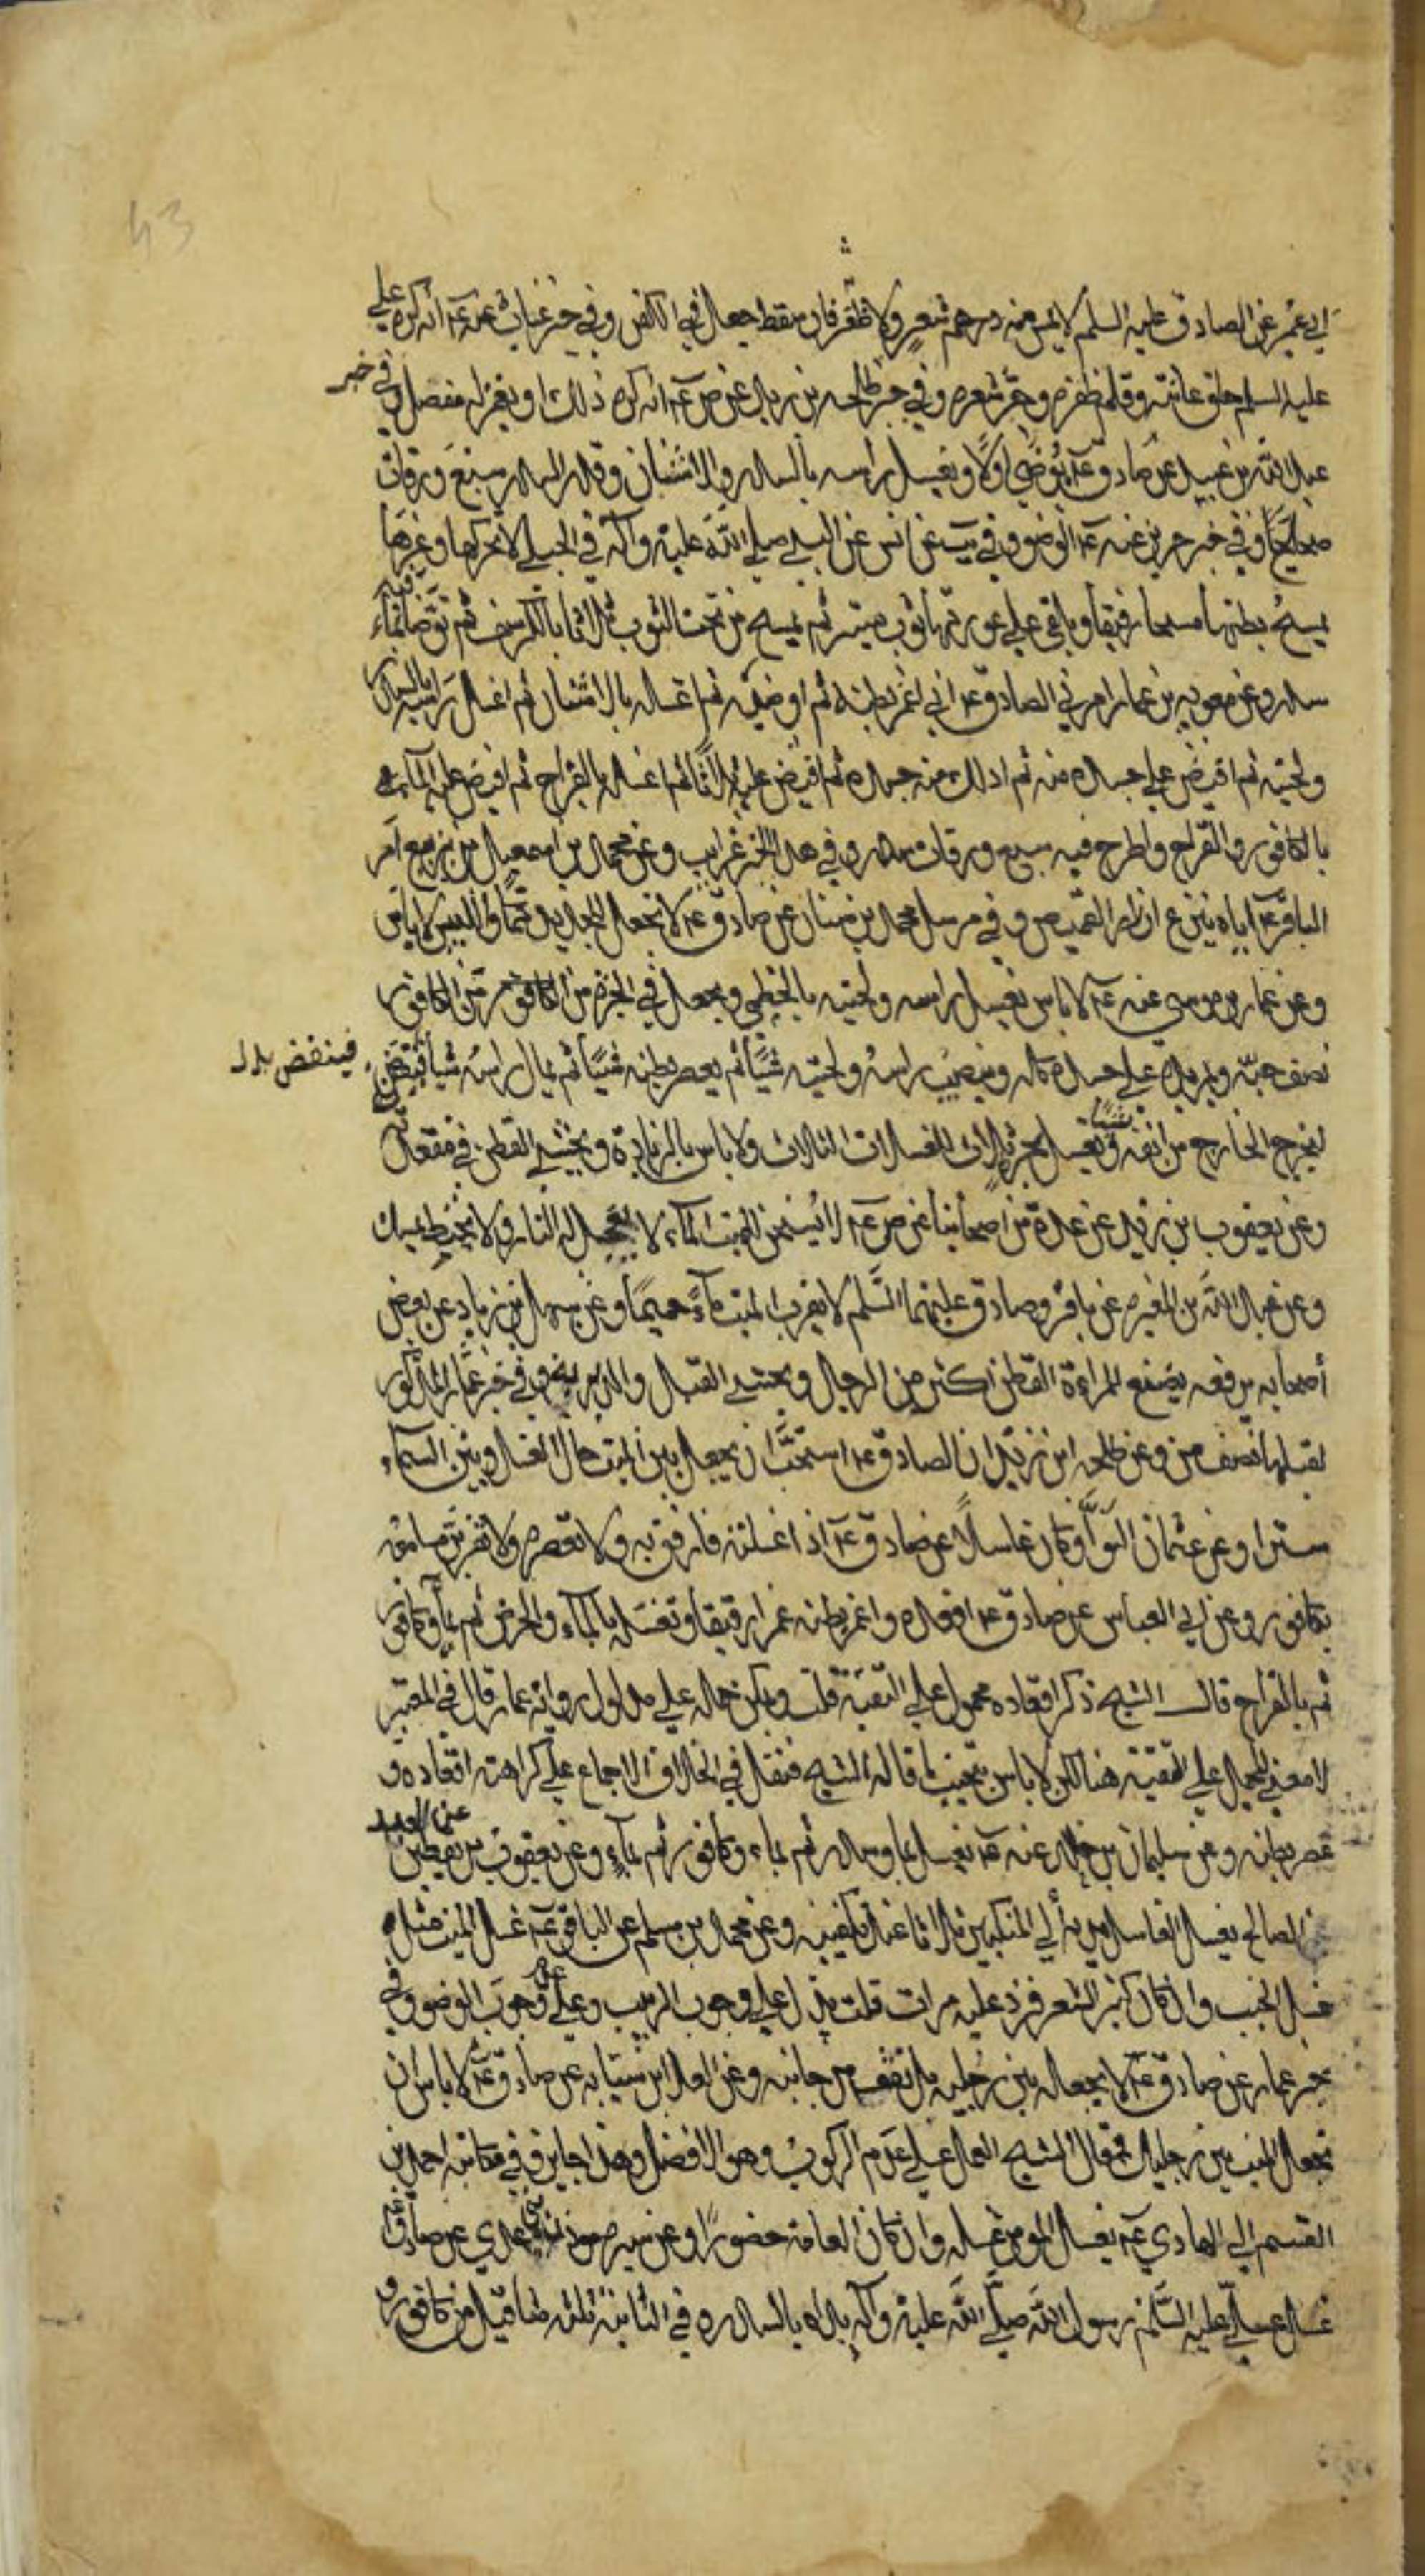 43
ابي عمير عن الصادق عليه السلم لا يمس منه شعر ولا ظفر فان سقط جعل في الكفن وفي خبر غياث عنه عۤ انه كره علي
عليه السلم حلق عانته وقلم ظفره وجز شعره وفي خبر طلحه بن زيد عن ص عۤ انه كره ذلك او يغمز له مفصل وفي خبر
عبد الله بن عبيد عن صادق عۤ يوضي اولا ويغسل راسه بالسدر والاشنان وقدر السدر سبع ورقات
صحاح وفي خبر حريز عنه عۤ الوضوء وفي عن انس عن النبي صلي الله عليه وآله في الحبلي لا تحركها وغيرها
يمسح بطنها مسحا رفيقا ويلقي علي عورتها ثوب ستير ثم يمسح من تحت الثوب ثلاثا بالكرسف ثم توضا بماء فيه
سدر وعن معويه بن عمار امرني الصادق عۤ اني اغمز بطنه ثم اوضيه ثم اغسله بالاشنان ثم اغسل راسه بالسدر
ولحيته ثم افيض علي جسده منه ثم ادلك منه جسده ثم افيض عليه ثلاثا ثم اغسله بالقراح ثم افيض عليه الماء
بالكافور والقراح واطرح فيه سبع ورقات سدر وفي هذا الخبر غرايب وعن محمد بن اسمعيل بن بزيع امر
الباقر عۤ اياه بنزع ازرار القميص وفي مرسل محمد بن سنان عن صادق عۤ لا تجعل للجديد كما واللبيس لا باس
وعن عمار بن موسي عنه عۤ لا باس بغسل راسه ولحيته بالخطمي ويجعل في الجره من الكافور
نصف حبه ويمر يده علي جسده كله وينصب راسه ولحيته شيئا ثم يعصر بطنه شيئا ثم يمال راسه شيئا فينفض
فينفض بدل
ليخرج الخارج من انفه ويغسل بجر ثلاث الغسلات الثلاث ولا باس بالزيادة ويحشي القطن في مقعدته
شيئا
وعن يعقوب بن يزيد عن عدة من اصحابنا عن ص عۤ لا يسخن للميت الماء لا يعجل له النار ولا يحنط بمسك
وعن عبد الله بن المغيره عن باقر وصادق عليهما السلم لا يقرب الميت ماء حميما وعن سهل بن زياد عن بعض
اصحابه يرفعه يضع للمراءة القطن اكثر من الرجال ويحشي القبل والدبر وفي خبر عمار المذكور
لقبلها نصف من وعن طلحه ابن زيد ان الصادق عۤ استحب ان يجعل بين الميت حال الغسل وبين السماء
سترا وعن عثمان النوا وكان غاسلا عن صادق عۤ اذا غسلته فارفق به ولا تعصره ولا تقربن مسامعه
بكافور وعن ابي العباس عن صادق عۤ اقعده واغمز بطنه غمزا رفيقا وتغسله بالماء والحرض ثم بماء وكافور
ثم بالقراح قال الشيخ ذكر اقعاده محمول علي التقية قلت ويمكن حمله علي مدلول رواية عمار قال في المعتبر
لا معني للحمل علي التقية هنا لكن لا باس بتجنب لما قاله الشيخ فنقل في الخلاف الاجماع علي كراهة اقعاده و
عصر بطنه وعن سليمان بن خالد عنه عۤ يغسل بماء وسدر ثم بماء وكافور ثم بماء وعن يعقوب بن يقطين عن العبد
الصالح يغسل الغاسل يديه الي المنكبين ثلاثا عند تكفينه وعن محمد بن مسلم عن الباقر عۤ غسل الميت مثل
غسل الجنب وان كان كثير الشعر فزد عليه مرات قلت يدل علي وجوب الترتيب وعلي وجوب الوضوء وفي
خبر عمار عن صادق عۤ لا يجعله بين رجليه بل يقف من جانبه وعن العلا بن سيابه عن صادق عۤ لا باس ان
تجعل الميت بين رجليك قال الشيخ العمل علي عدم الركوب وهو الافضل وهذا جايز وفي مكاتبة احمد بن
القسم الي الهادي عۤ يغسل المومن غسله وان كان العامة حضورا وعن عن صادق عۤ
غسل علي عليه السلم رسول الله صلي الله عليه وآله بداه بالسدر وفي الثانية ثلثه مثاقيل من كافور و